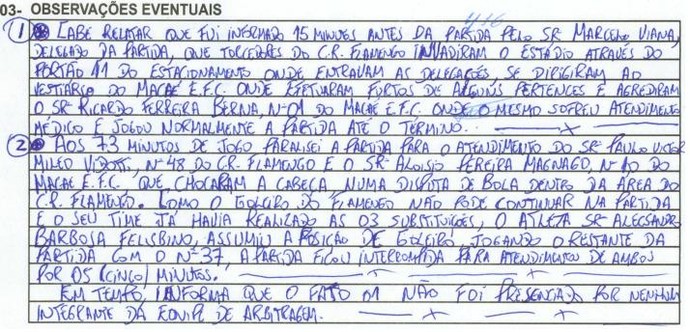 03- OBSERVAÇÕES EVENTUAIS
1 CABE RELATAR QUE FUI INFORMADO 15 MINUTOS ANTES DA PARTIDA PELO SR MARCELO VIANA,
DELEGADO DA PARTIDA, QUE TORCEDORES DO C.R. FLAMENGO INVADIRAM O ESTÁDIO ATRAVÉS DO
PORTÃO 11 DO ESTACIONAMENTO ONDE ENTRAVAM AS DELEGAÇÕES, SE DIRIGIRAM AO
VESTIÁRIO DO MACAÉ E.F.C. ONDE EFETUARAM FURTOS DE ALGUNS PERTENCES E AGREDIRAM
O SR RICARDO FERREIRA BERNA, Nº 01 DO MACAÉ E.F.C. ONDE O MESMO SOFREU ATENDIMENTO
MÉDICO E JOGOU NORMALMENTE A PARTIDA ATÉ O TÉRMINO.
2 AOS 73 MINUTOS DE JOGO PARALISEI A PARTIDA PARA O ATENDIMENTO DO SR PAULO VICTOR
MILEO VIDOTTI, Nº 48 DO C.R. FLAMENGO E O SR ALOISIO PEREIRA MAGNAGO, Nº 10 DO
MACAÉ E.F.C., QUE CHOCARAM A CABEÇA NUMA DISPUTA DE BOLA DENTRO DA ÁREA DO
C.R. FLAMENGO. COMO O GOLEIRO DO FLAMENGO NÃO PODE CONTINUAR NA PARTIDA
E O SEU TIME JÁ HAVIA REALIZADO AS 03 SUBSTITUIÇÕES, O ATLETA SR ALECSANDRO
BARBOSA FELISBINO, ASSUMIU A POSIÇÃO DE GOLEIRO, JOGANDO O RESTANTE DA
PARTIDA COM O Nº 37, A PARTIDA FICOU INTERROMPIDA PARA ATENDIMENTO DE AMBOS
POR 05 (CINCO) MINUTOS.
EM TEMPO, INFORMA QUE O FATO 01 NÃO FOI PRESENCIADO POR NENHUM
INTEGRANTE DA EQUIPE DE ARBITRAGEM.